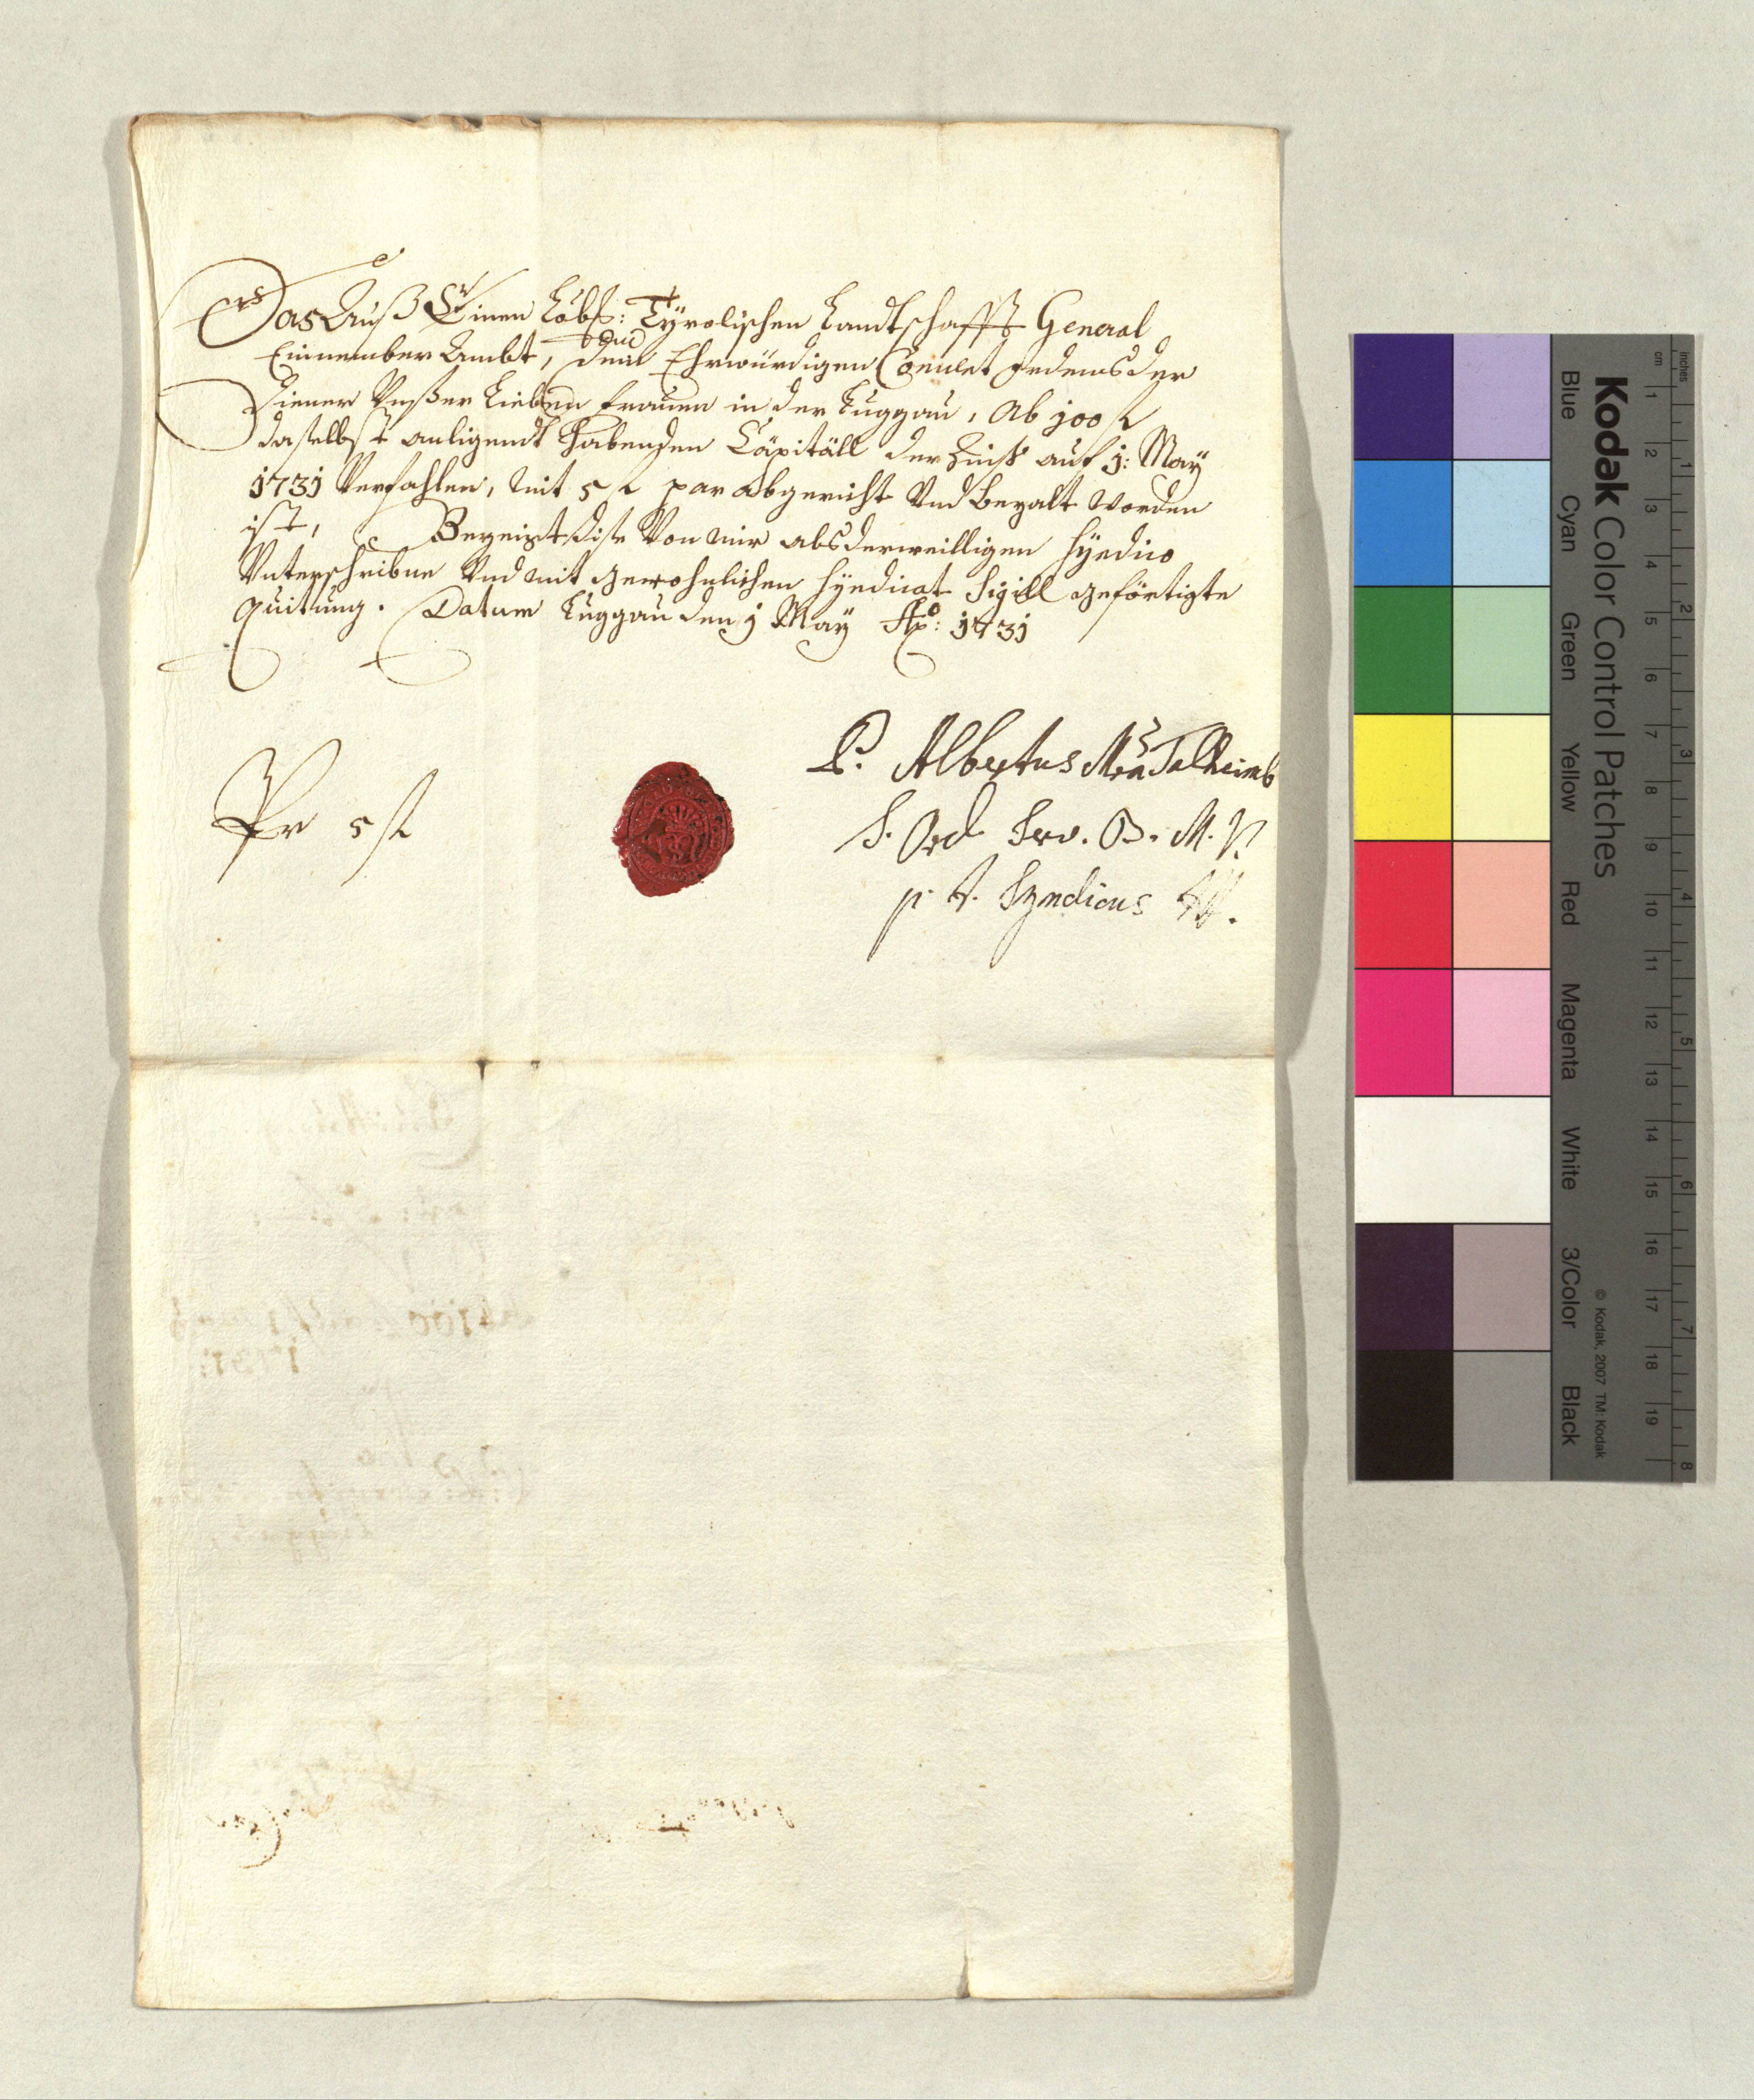 Das Auß Einer Löbl: Tyrolischen Landtschafft General
Einnember Ambt, dem Ehrwürdigen Convent ordens der
Diener Unßer Lieben Frauen in der Luggau, Ab 100 fl
daselbst anligendt habenden Capitäll der Zinß auf 1: May
1731 Verfahlen, mit 5 fl par Abgericht Und Bezalt worden
ist, Bezeigt dise Von mir als derweilligen Syndico
Unterschribne Und mit gewohnlichen Syndicat Sigill geförtigte
quitung. Datum Luggau den 1 May Ao: 1731
P. Albertus Mra Talheimb
S. Ord Serv. B. M. V.
p. t. Syndicus
Pr 5 fl
Kodak Color Control Patches
Blue Cyan Green Yellow Red Magenta White 3/Color Black
© Kodak, 2007 TM: Kodak
cm 1 2 3 4 5 6 7 8 9 10 11 12 13 14 15 16 17 18 19
inches 1 2 3 4 5 6 7 8